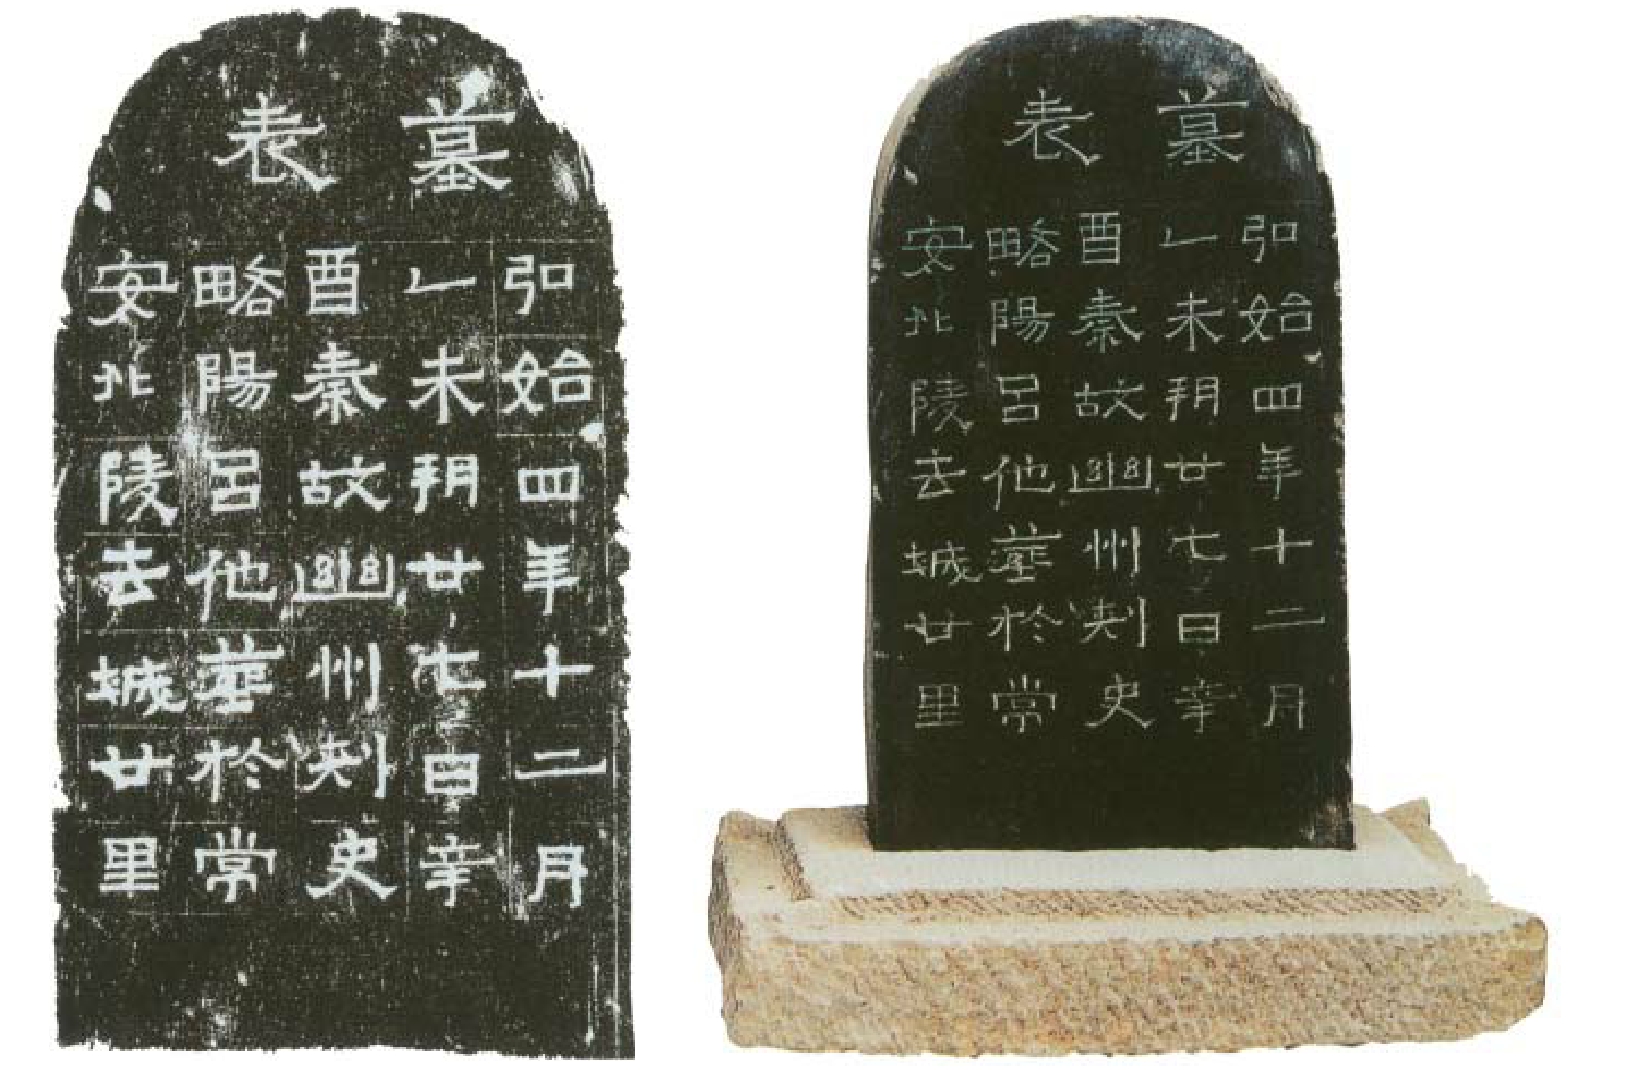 墓表
弘始四年十二月
乙未朔廿七日辛
酉秦故幽州刺史
略陽呂他葬於常
安北陵去城廿里
墓表
弘始四年十二月
乙未朔廿七日辛
酉秦故幽州刺史
略陽呂他葬於常
安北陵去城廿里